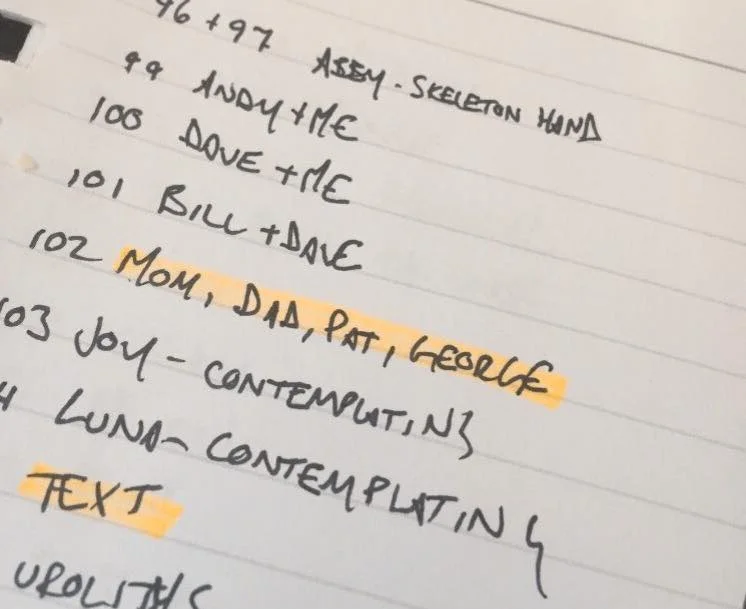 96 + 97 ABBY - SKELETON HAND
99 ANDY + ME
100 DAVE + ME
101 BILL + DAVE
102 MOM, DAD, PAT, GEORGE
103 JOY - CONTEMPLATING
4 LUNA - CONTEMPLATING
TEXT